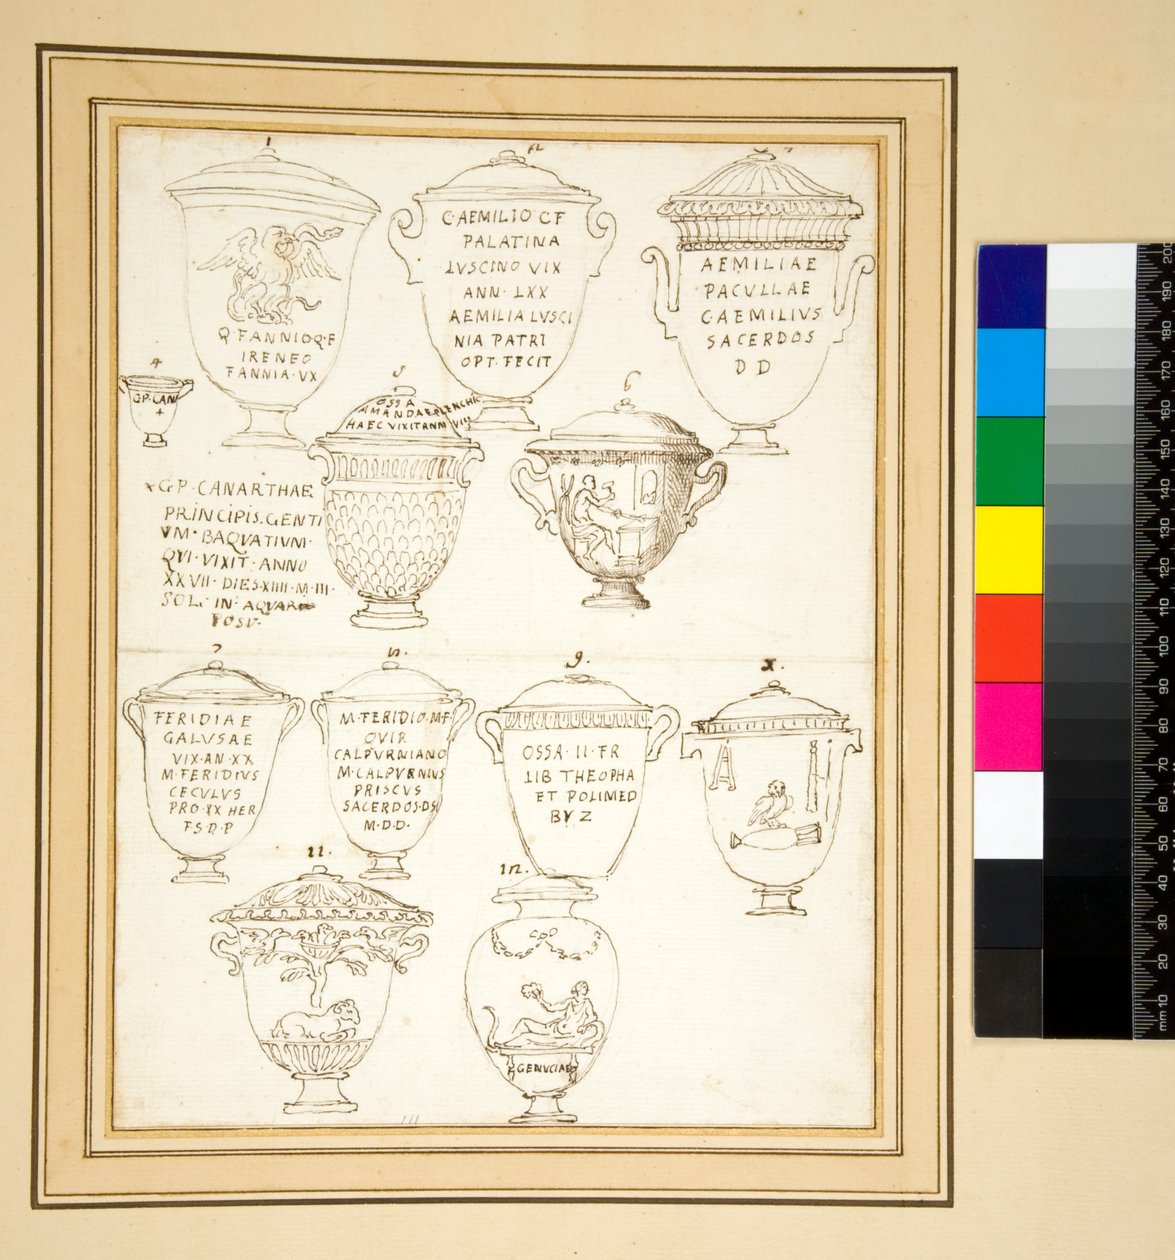 1
Q·FANNIOQF
IRENEO
FANNIA·VX
C·AEMILIO CF
PALATINA
LVSCINO VIX
ANN·LXX
AEMILIA LVSCI
NIA PATRI
OPT·FECIT
AEMILIAE
PACVLLAE
CAEMILIVS
SACERDOS
D D
4
G·P·CAN
+
5
OSSA
HAEC VIXIT ANN VIII
6
+G·P·CANARTHAE
PRINCIPIS·GENTI
VM·BAQVATIVM·
QVI·VIXIT·ANNO
XXVII·DIES·XIIII·M·III·
SOL· IN·AQVAR
POSV·
7
FERIDIAE
GALVSAE
VIX·AN·XX
M·FERIDIVS
CECVLVS
PRO·IX HER
F·S·D·P
M·FERIDIO·M·F·
QVIR
CALPVRNIANO
M·CALPVRNIVS
PRISCVS
SACERDOS·DS
M·D·D·
9.
OSSA·II·FR
LIB THEOPHA
ET POLIMED
BVZ
x.
A H
11.
12.
GENVCIAE
mm 10 20 30 40 50 60 70 80 90 100 110 120 130 140 150 160 170 180 190 200